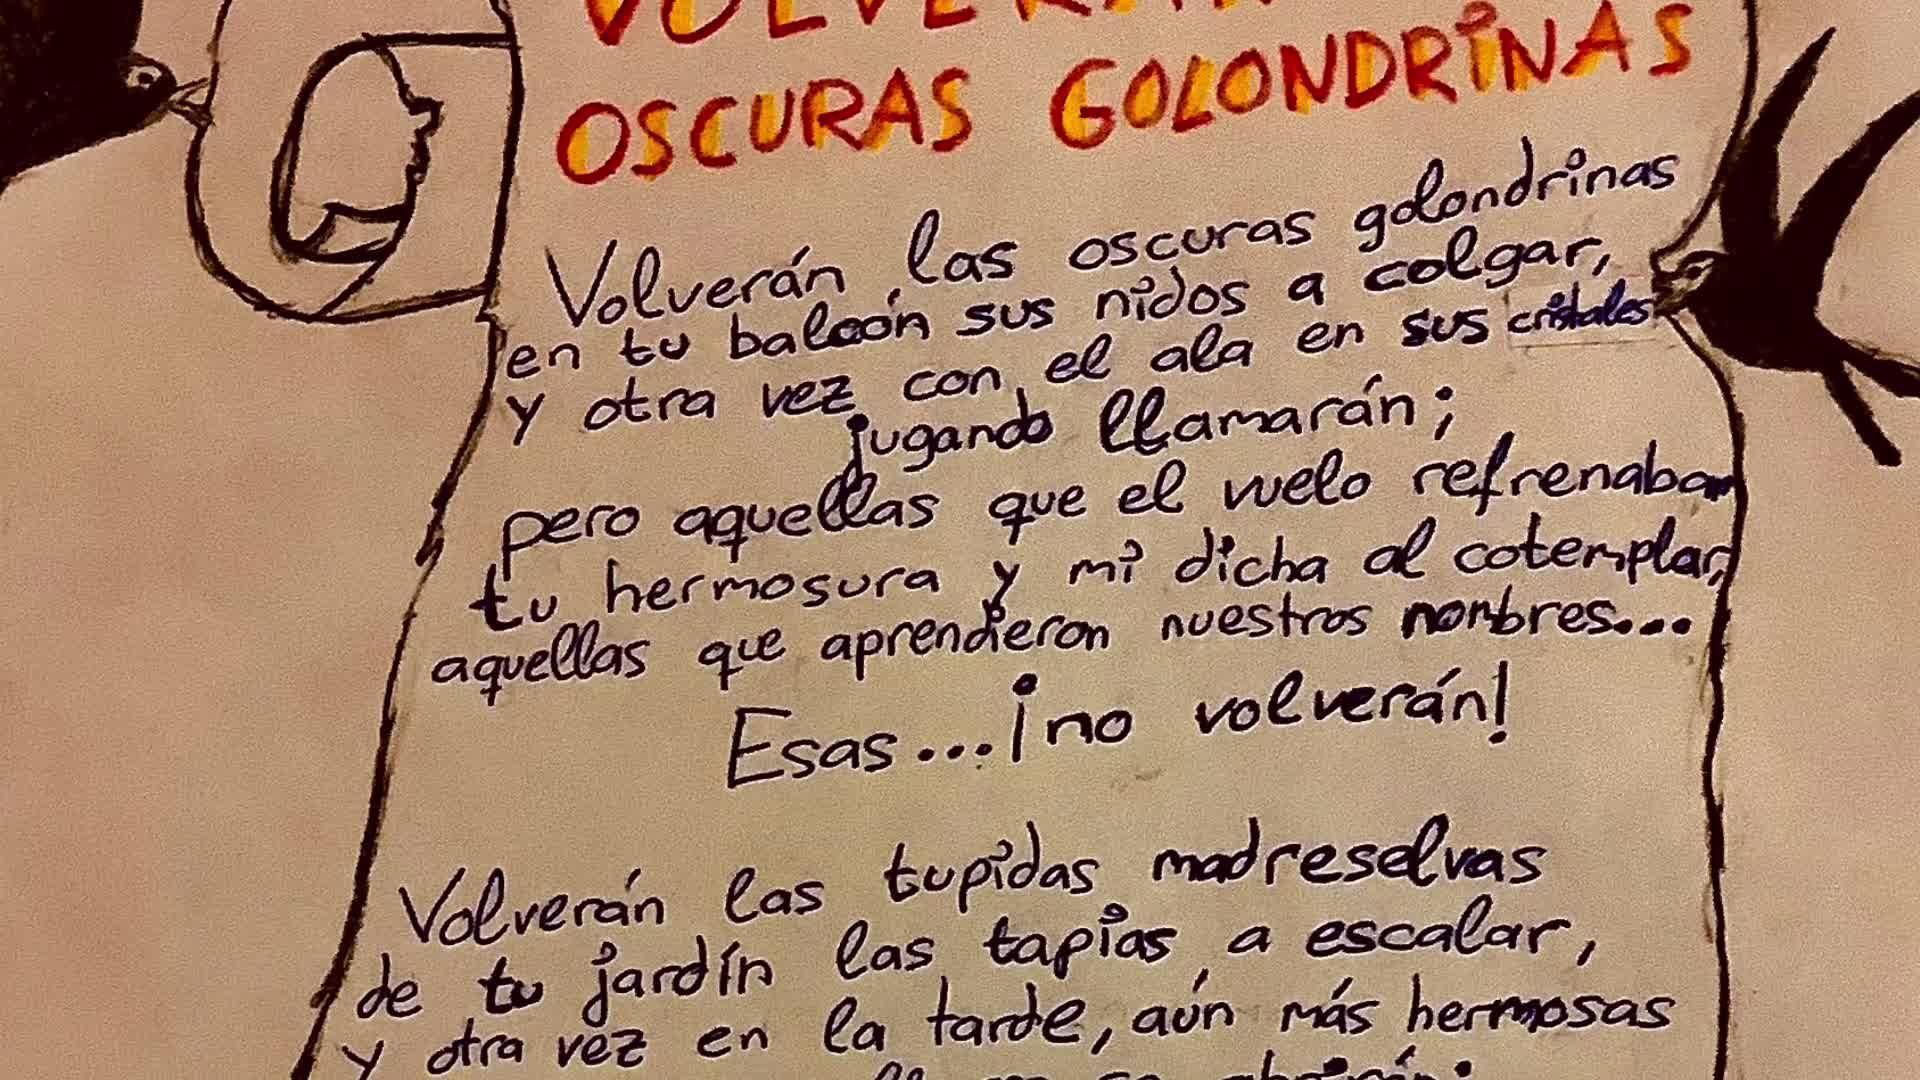 OSCURAS GOLONDRINAS
Volverán las oscuras golondrinas
en tu balcón sus nidos a colgar,
y otra vez con el ala en sus cristales
jugando llamarán;
pero aquellas que el vuelo refrenaban
tu hermosura y mi dicha al cotemplar,
aquellas que aprendieron nuestros nombres...
Esas...¡no volverán!
Volverán las tupidas madreselvas
de tu jardín las tapias a escalar,
y otra vez en la tarde, aún más hermosas